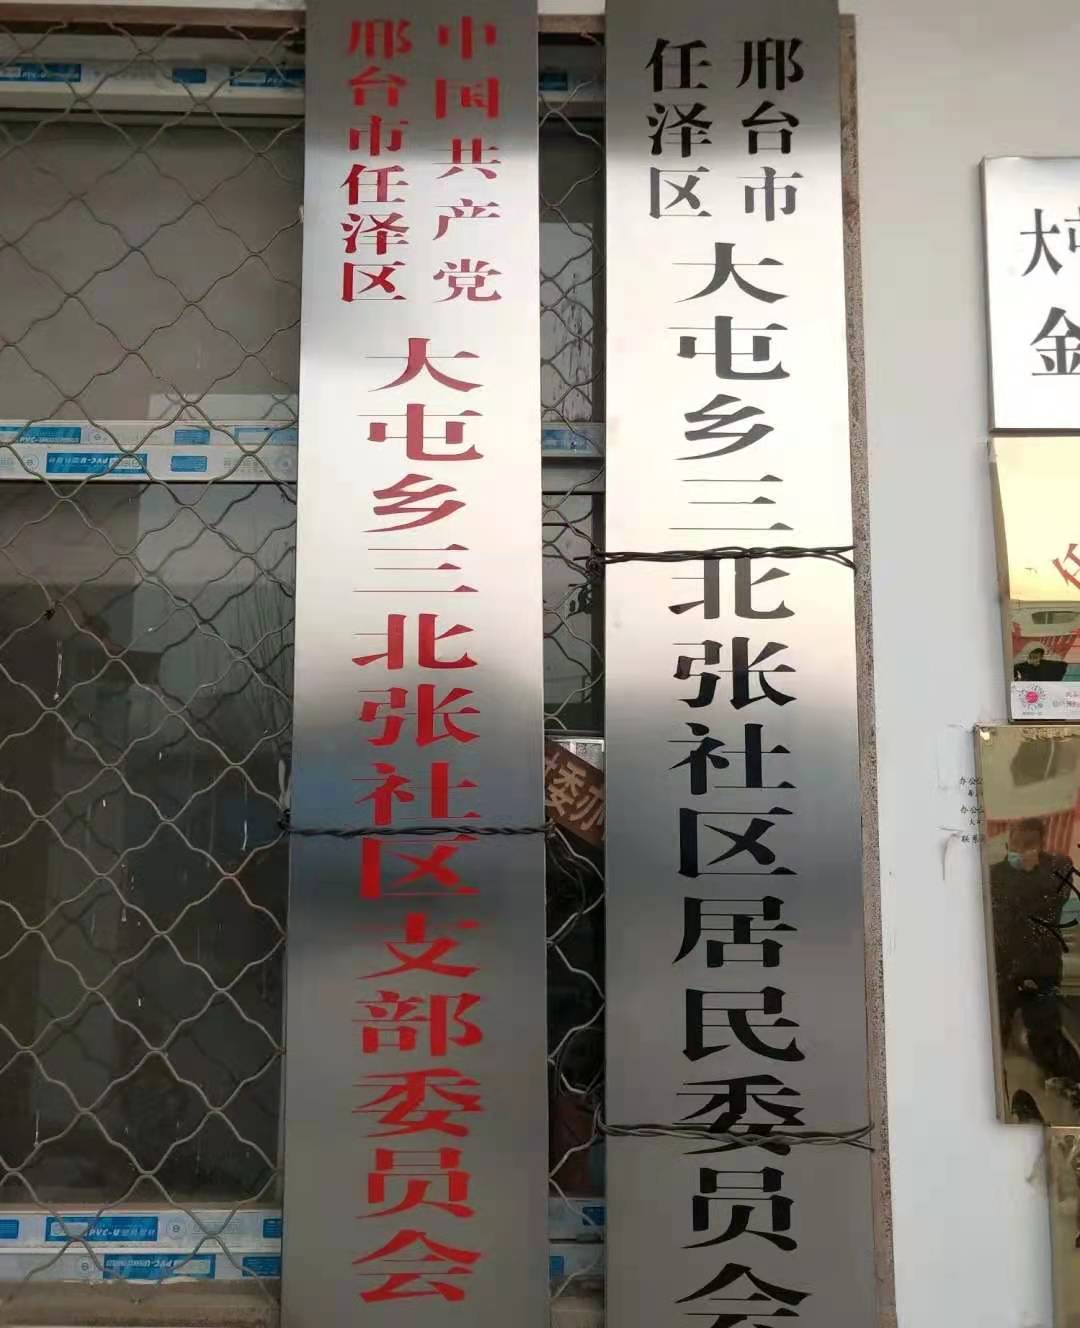 中国共产党
邢台市任泽区
大屯乡三北张社区支部委员会
邢台市
任泽区
大屯乡三北张社区居民委员会
大屯
金